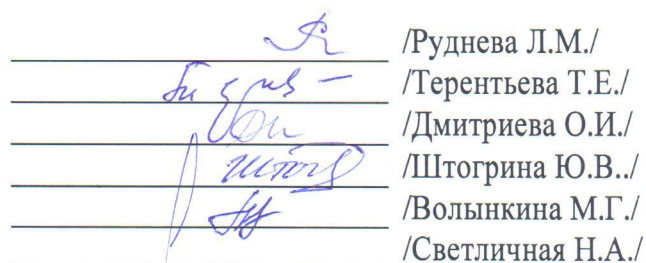 /Руднева Л.М./
/Терентьева Т.Е./
/Дмитриева О.И./
/Штогрина Ю.В../
/Волынкина М.Г./
/Светличная Н.А./